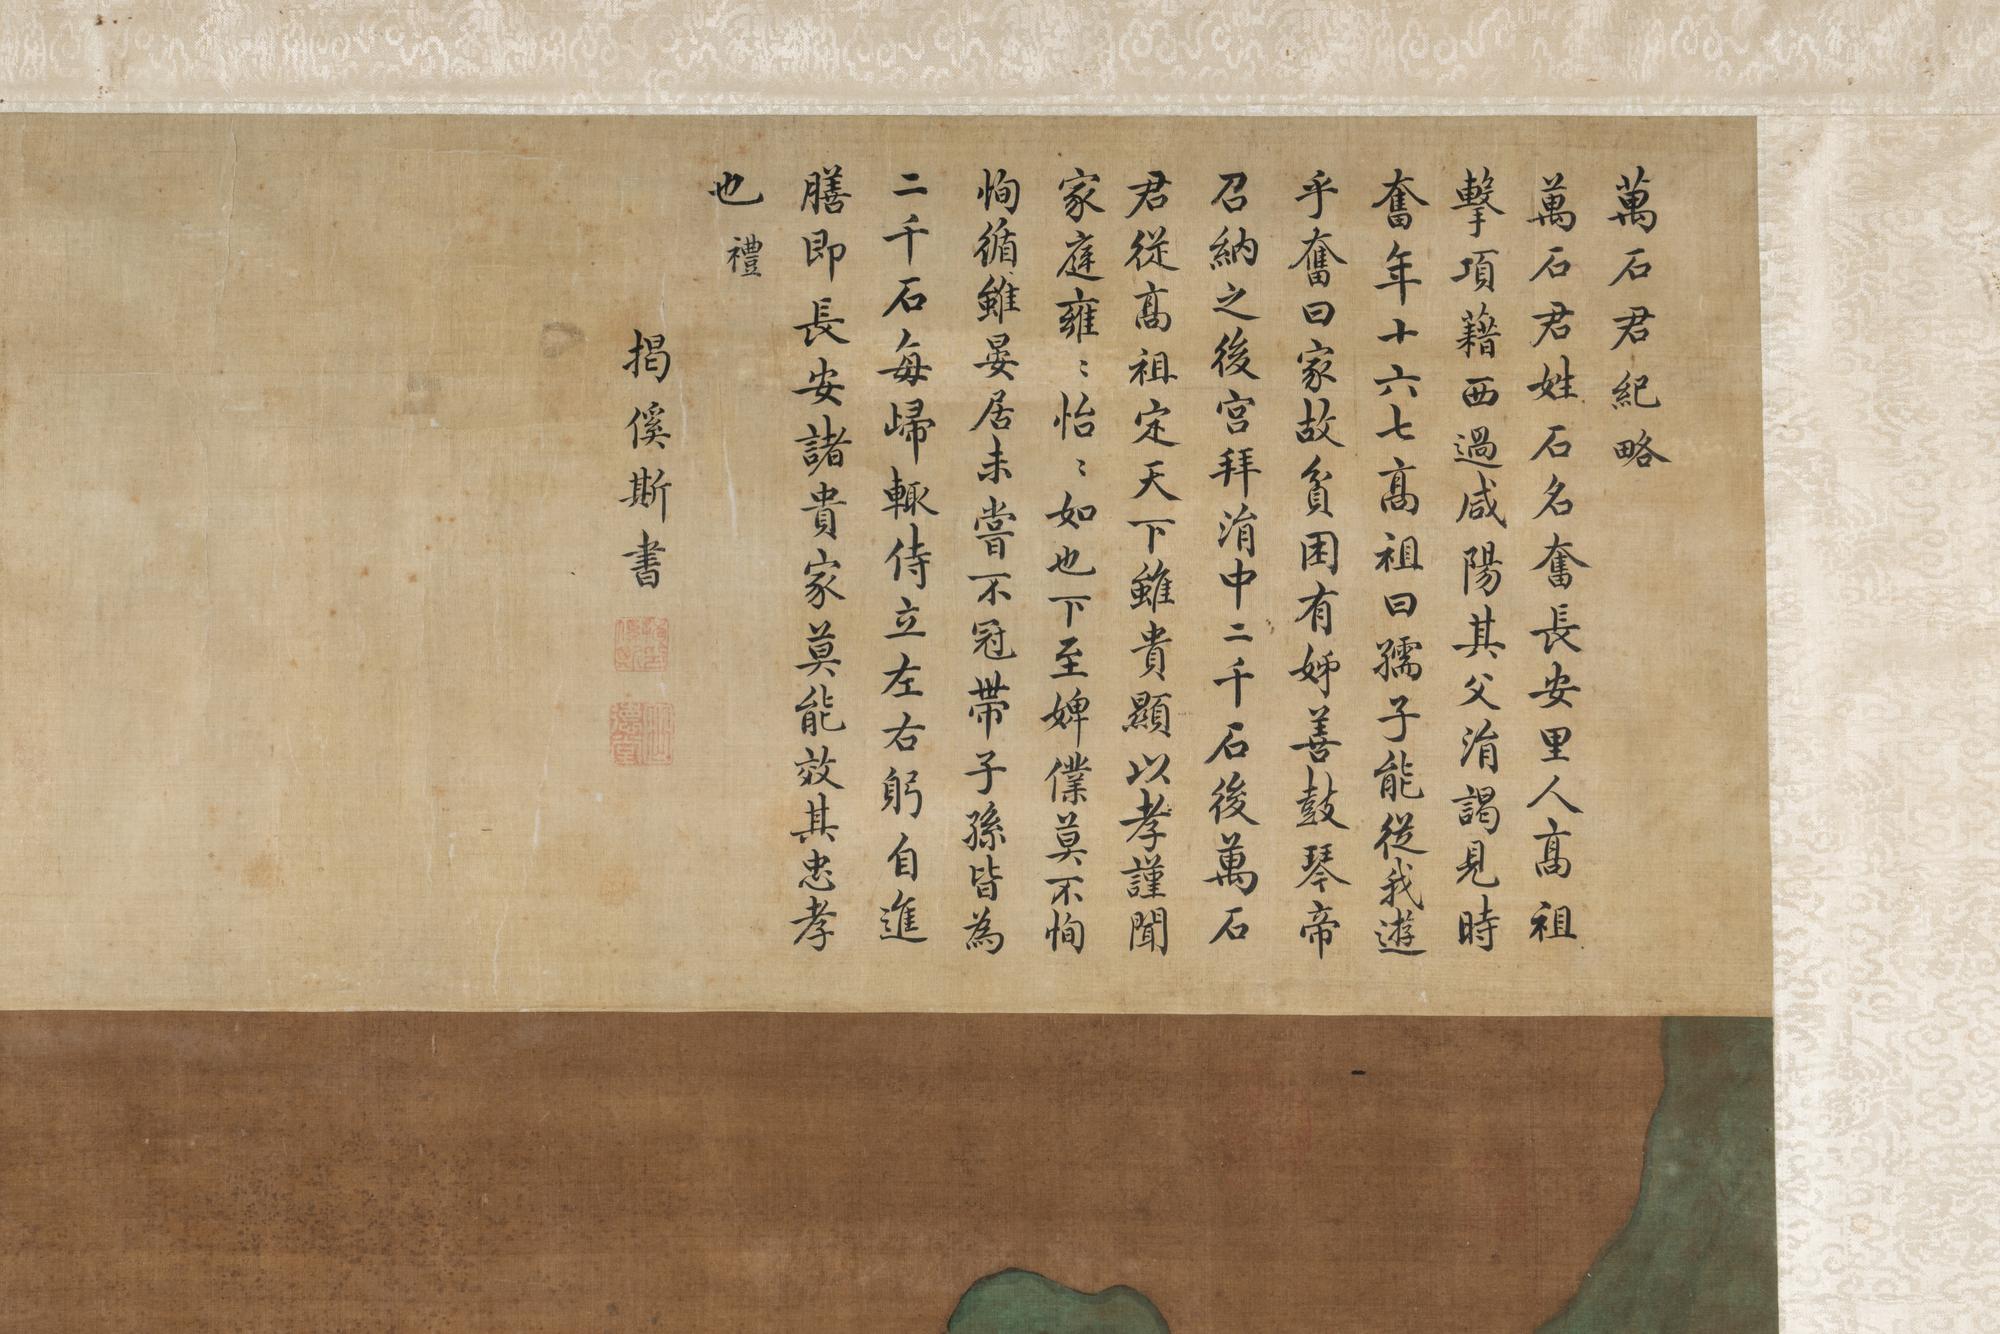 萬石君紀略
萬石君姓石名奮長安里人高祖
擊項藉西過咸陽其父淯謁見時
奮年十六七高祖曰孺子能從我遊
乎奮曰家故貧困有姊善鼓琴帝
召納之後宮拜淯中二千石後萬石
君從高祖定天下雖貴顯以孝謹聞
家庭雍〻怡〻如也下至婢僕莫不恂
恂循雖晏居未嘗不冠帶子孫皆為
二千石每歸輒侍立左右躬自進
膳即長安諸貴家莫能效其忠孝
也 禮
揭傒斯書